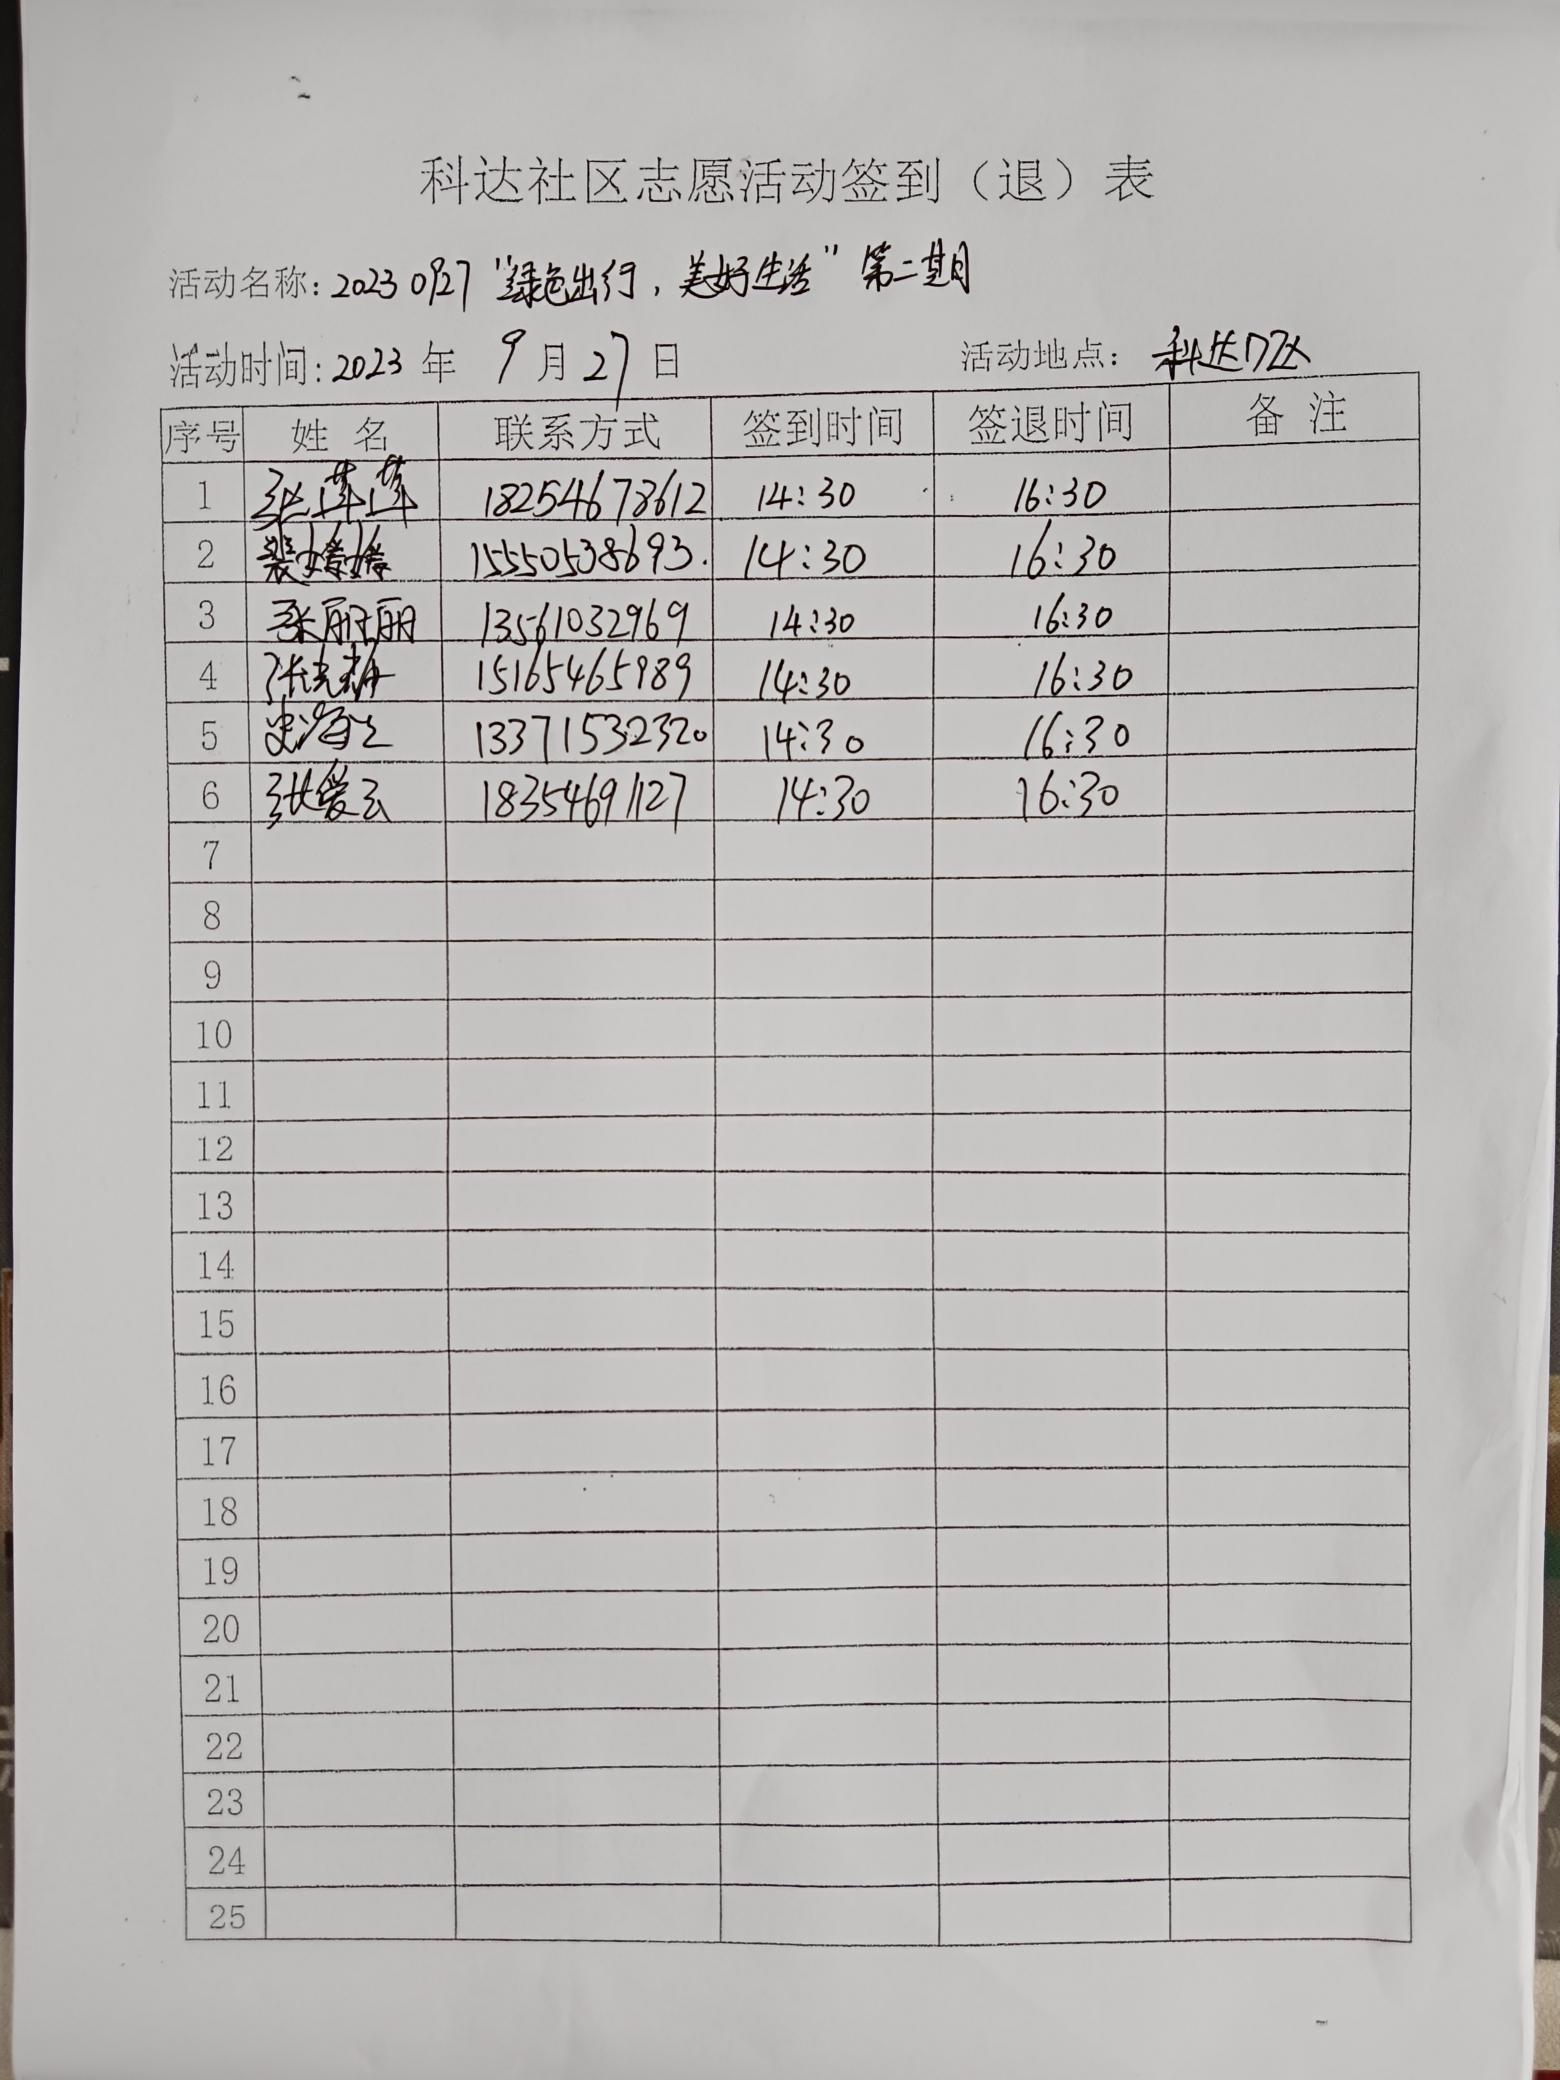 科达社区志愿活动签到（退）表
活动名称: 2023 0927 "绿色出行，美好生活" 第二期
活动时间: 2023 年 9 月 27 日 活动地点: 科达
序号 姓名 联系方式 签到时间 签退时间 备注
1 张萍萍 18254678612 14:30 16:30
2 裴媛媛 15550538693. 14:30 16:30
3 张丽丽 13561032969 14:30 16:30
4 15165465989 14:30 16:30
5 史海 13371532320 14:30 16:30
6 张爱云 18354691127 14:30 16:30
7
8
9
10
11
12
13
14
15
16
17
18
19
20
21
22
23
24
25